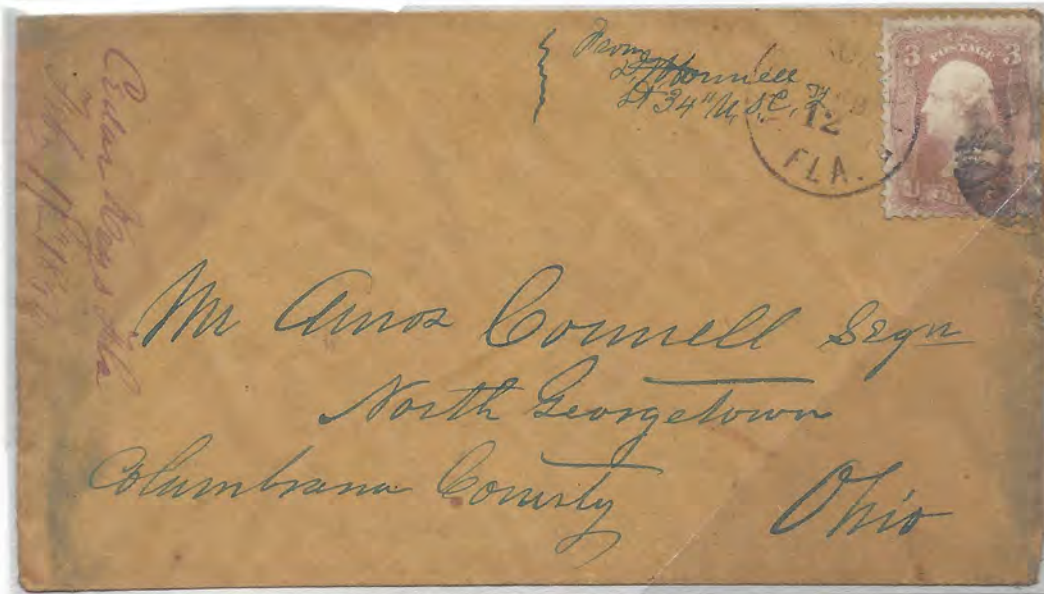 Cedar Keys Fla
Feb 12th
From
Connell
Lt 34th U.S.C.T.
12
FLA.
3 POSTAGE 3
U
Mr Amos Connell Seqn
North Georgetown
Columbiana County
Ohio